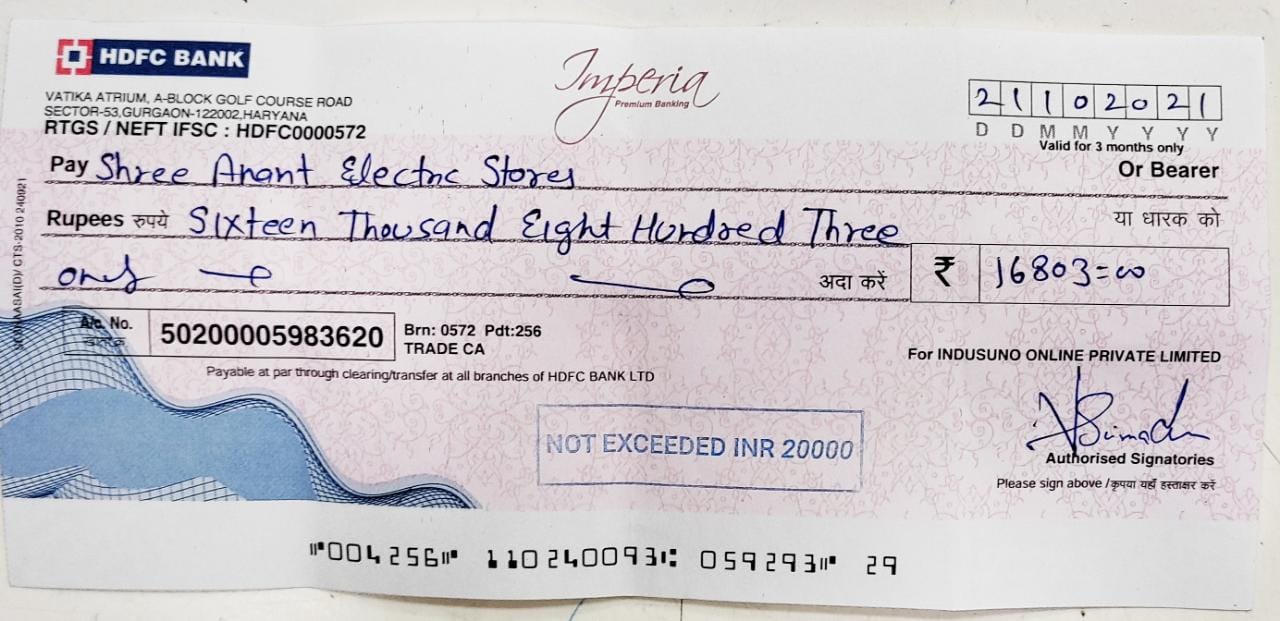 HDFC BANK
Imperia
Premium Banking
VATIKA ATRIUM, A-BLOCK GOLF COURSE ROAD
SECTOR-53,GURGAON-122002,HARYANA
RTGS / NEFT IFSC : HDFC0000572
21102021
D D M M Y Y Y Y
Valid for 3 months only
Pay Shree Anant Electric Stores Or Bearer
Rupees रुपये Sixteen Thousand Eight Hundred Three या धारक को
only अदा करें ₹ 16803=00
A/c. No. 50200005983620 Brn: 0572 Pdt:256
TRADE CA
Payable at par through clearing/transfer at all branches of HDFC BANK LTD
For INDUSUNO ONLINE PRIVATE LIMITED
NOT EXCEEDED INR 20000
Authorised Signatories
Please sign above /कृपया यहाँ हस्ताक्षर करें
⑈004256⑈ 110240093⑆ 059293⑈ 29
CTS-2010 240921